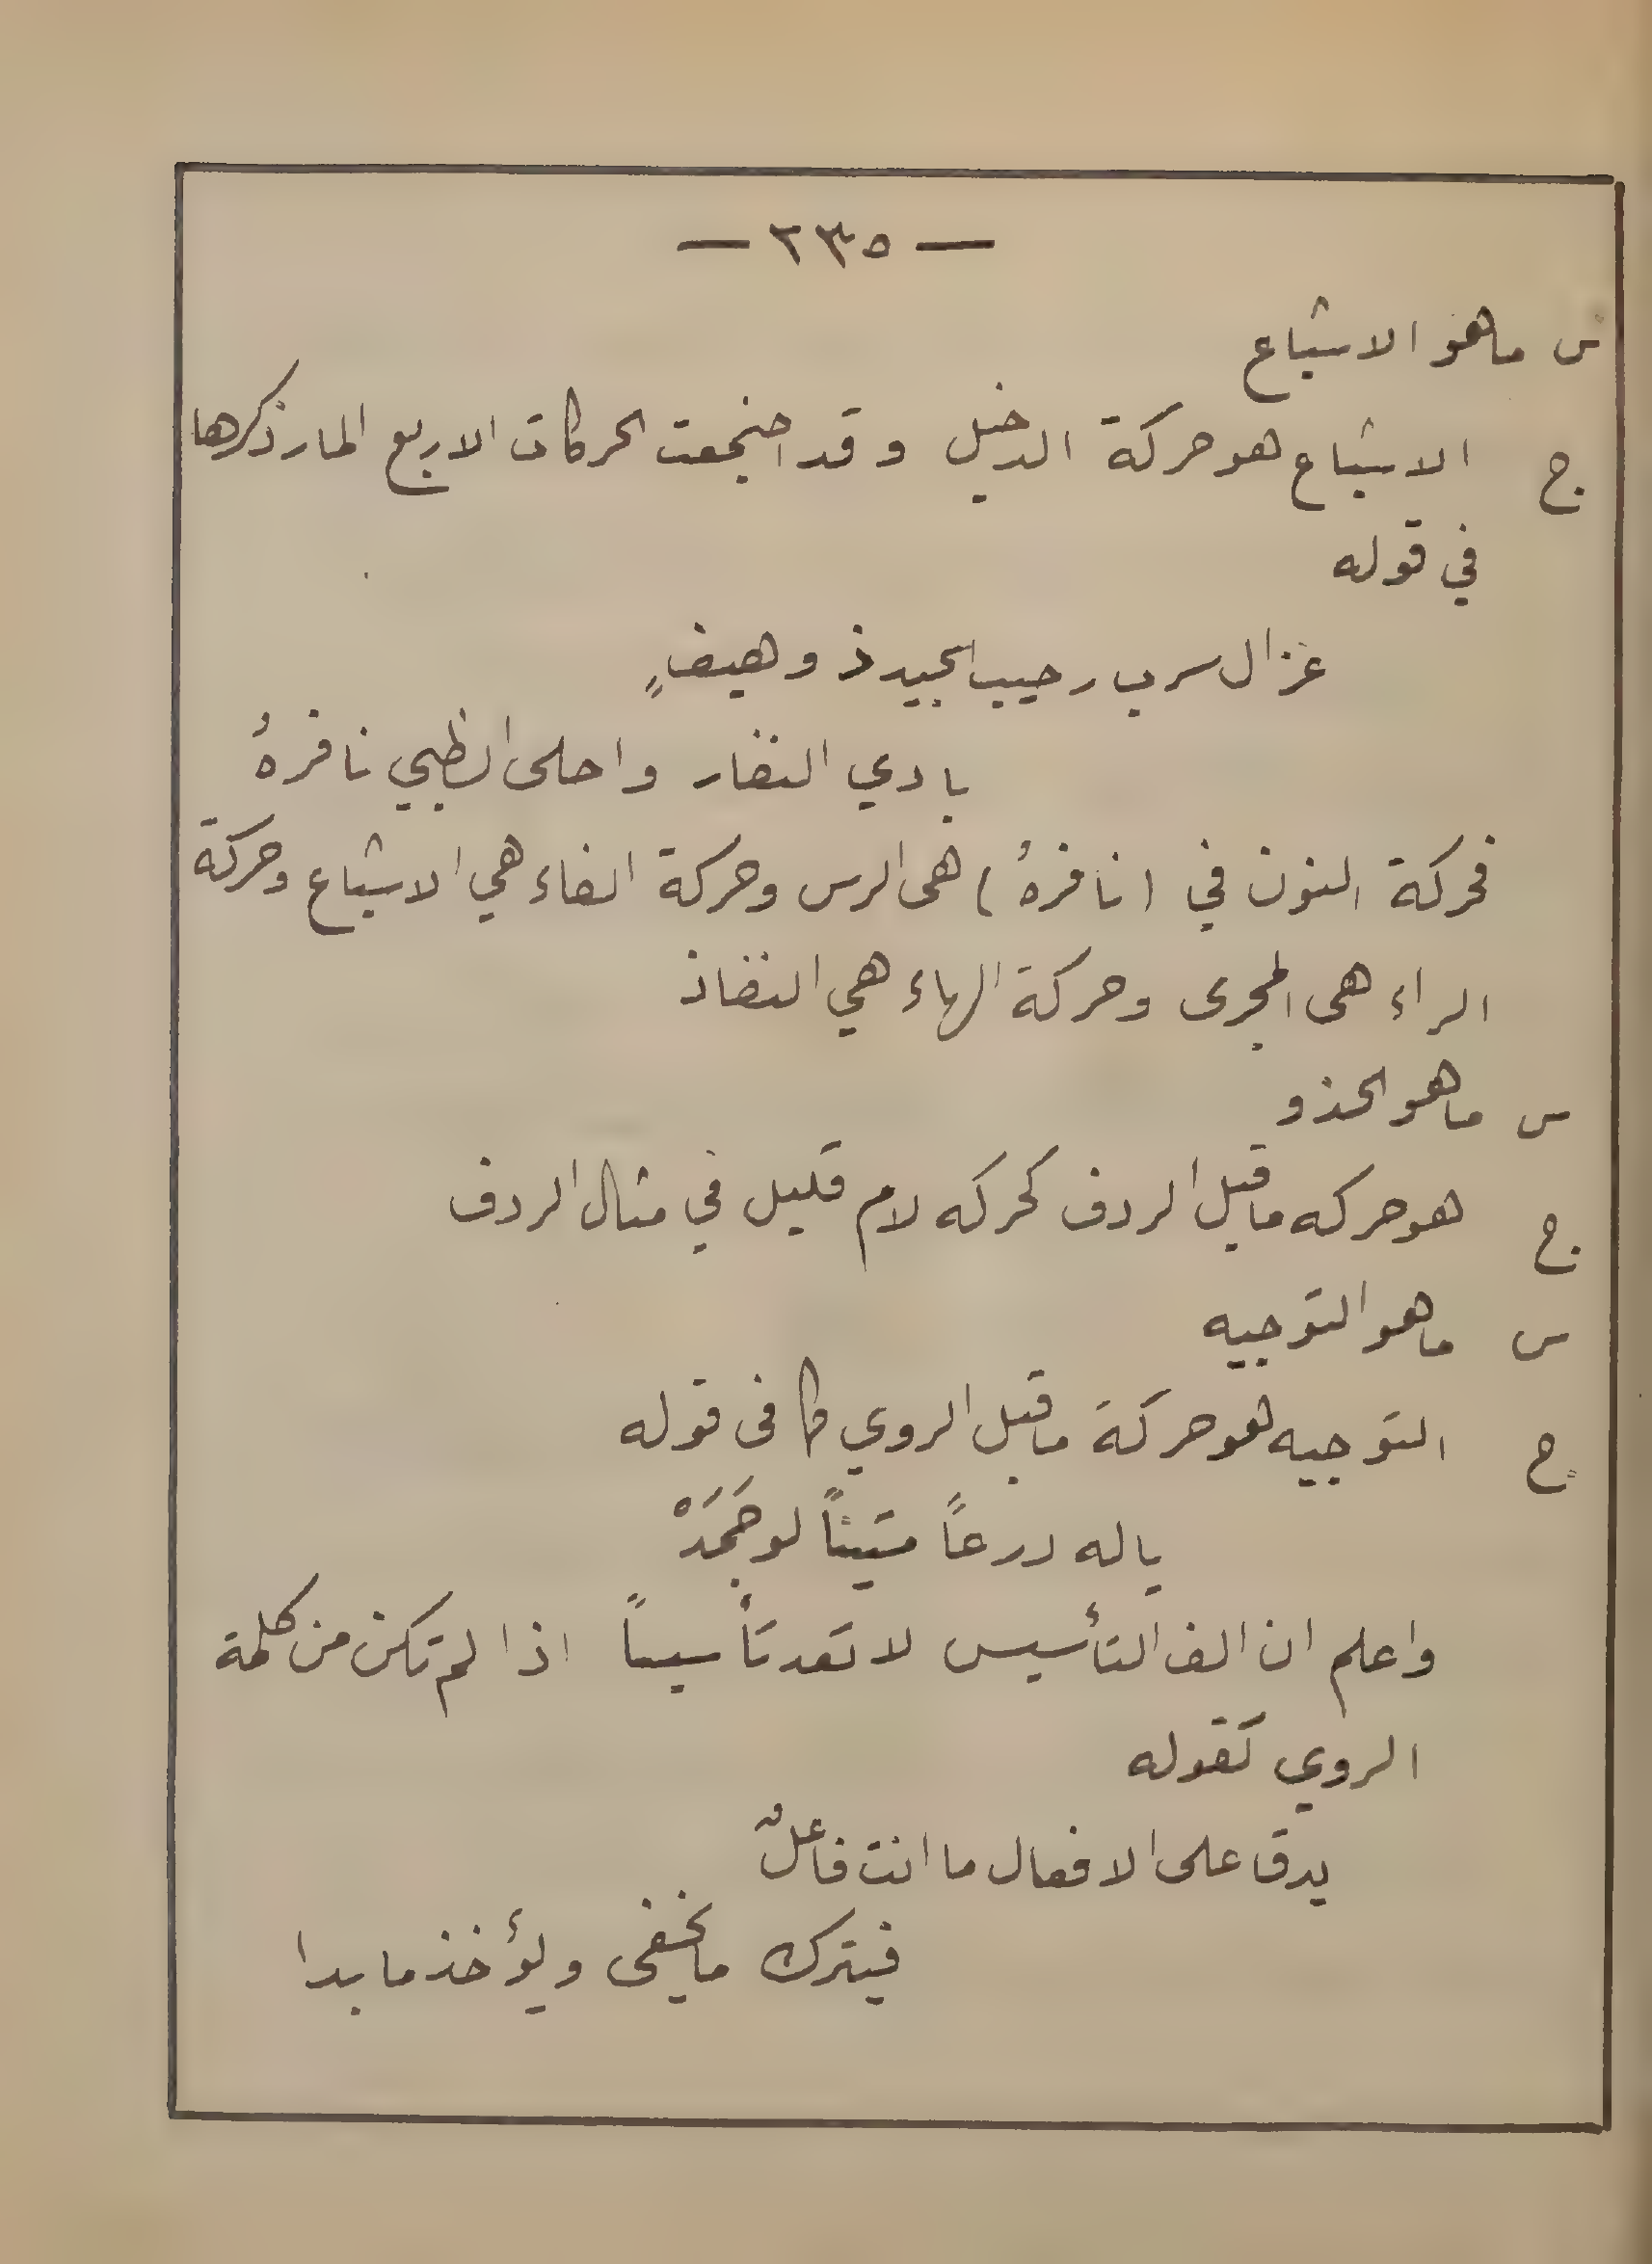 — ٢٣٥ —
س ماهو الاشباع
ج الاشباع هو حركة الدخيل وقد اجتمعت الحركات الاربع المار ذكرها
في قوله
غزال سرب رحيب الجيد ذو هيفٍ
بادي النفار واحلى الظبي نافرهُ
فحركة النون في (نافرهُ) هى الرس وحركة الفاء هي الاشباع وحركة
الراء هى المجرى وحركة الهاء هي النفاذ
س ماهو الحذو
ج هو حركه ماقبل الردف كحركه لام قليل في مثال الردف
س ماهو التوجيه
ج التوجيه هو حركة ماقبل الروي كما فى قوله
ياله درعاً متيناً لو جَمَدْ
واعلم ان الف التأسيس لا تعد تأسيساً اذا لم تكن من كلمة
الروي كقوله
يدق على الافعال ما انت فاعلٌ
فيترك مايخفى ويؤخذ ما بدا